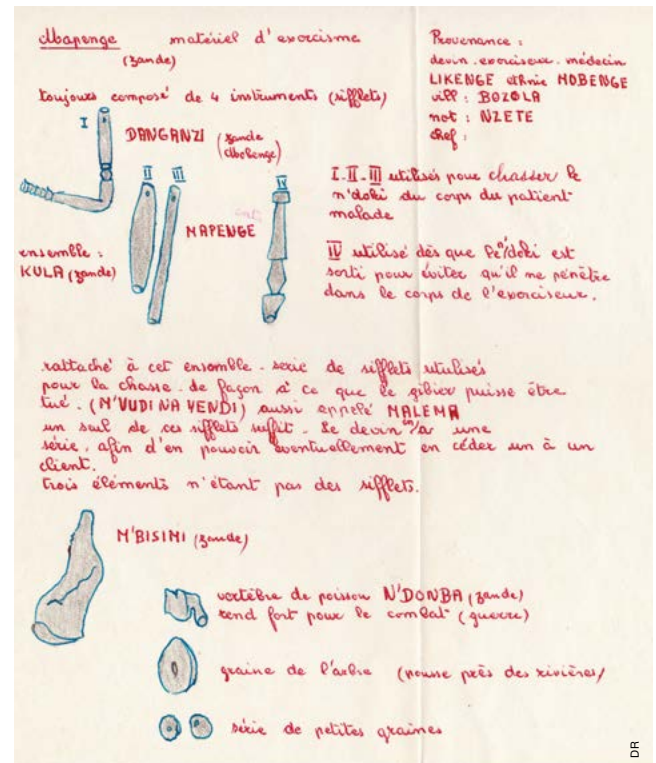 Mapenge matériel d'exorcisme
(zande)
toujours composé de 4 instruments (sifflets)
Provenance :
devin. exorciseur. médecin
LIKENGE ethnie MOBENGE
vill : BOZOLA
not : NZETE
chef :
I
DANGANZI (zande
Mobenge)
II III
MAPENGE
IV
ensemble :
KULA (zande)
I. II. III utilisés pour chasser le
n'doki du corps du patient
malade
IV utilisé dès que le n'doki est
sorti pour éviter qu'il ne pénètre
dans le corps de l'exorciseur.
rattaché à cet ensemble. serie de sifflets utulisés
pour la chasse. de façon à ce que le gibier puisse être
tué. (M'VUDI NA VENDI) aussi appelé MALEMA
un seul de ces sifflets suffit. Le devin en a une
série, afin d'en pouvoir éventuellement en céder un à un
client.
trois éléments n'étant pas des sifflets.
M'BISIMI (zande)
vertèbre de poisson N'DONBA (zande)
rend fort pour le combat (guerre)
graine de l'arbre (pousse près des rivières/
série de petites graines
DR